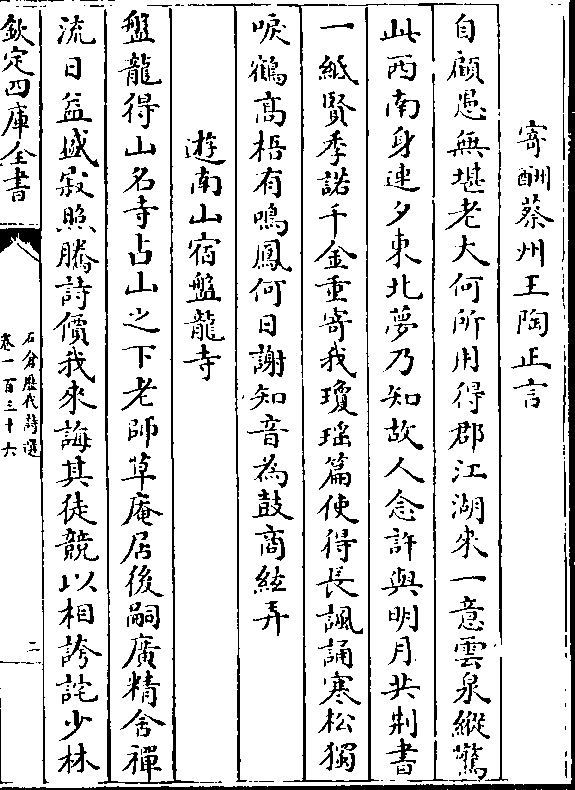 寄酬蔡州王陶正言
自顧愚無堪老大何所用得郡江湖來一意雲泉縱驚
此西南身連夕東北夢乃知故人念許與明月共荆書
一紙賢季諾千金重寄我瓊瑤篇使得長諷誦寒松獨
唳鶴高梧有鳴鳳何日謝知音為鼓商絃弄
遊南山宿盤龍寺
盤龍得山名寺占山之下老師草庵居後嗣廣精舍禪
流日益盛寂照騰詩價我來誨其徒競以相誇詫少林
欽定四庫全書
石倉歷代詩選
卷一百三十六
二